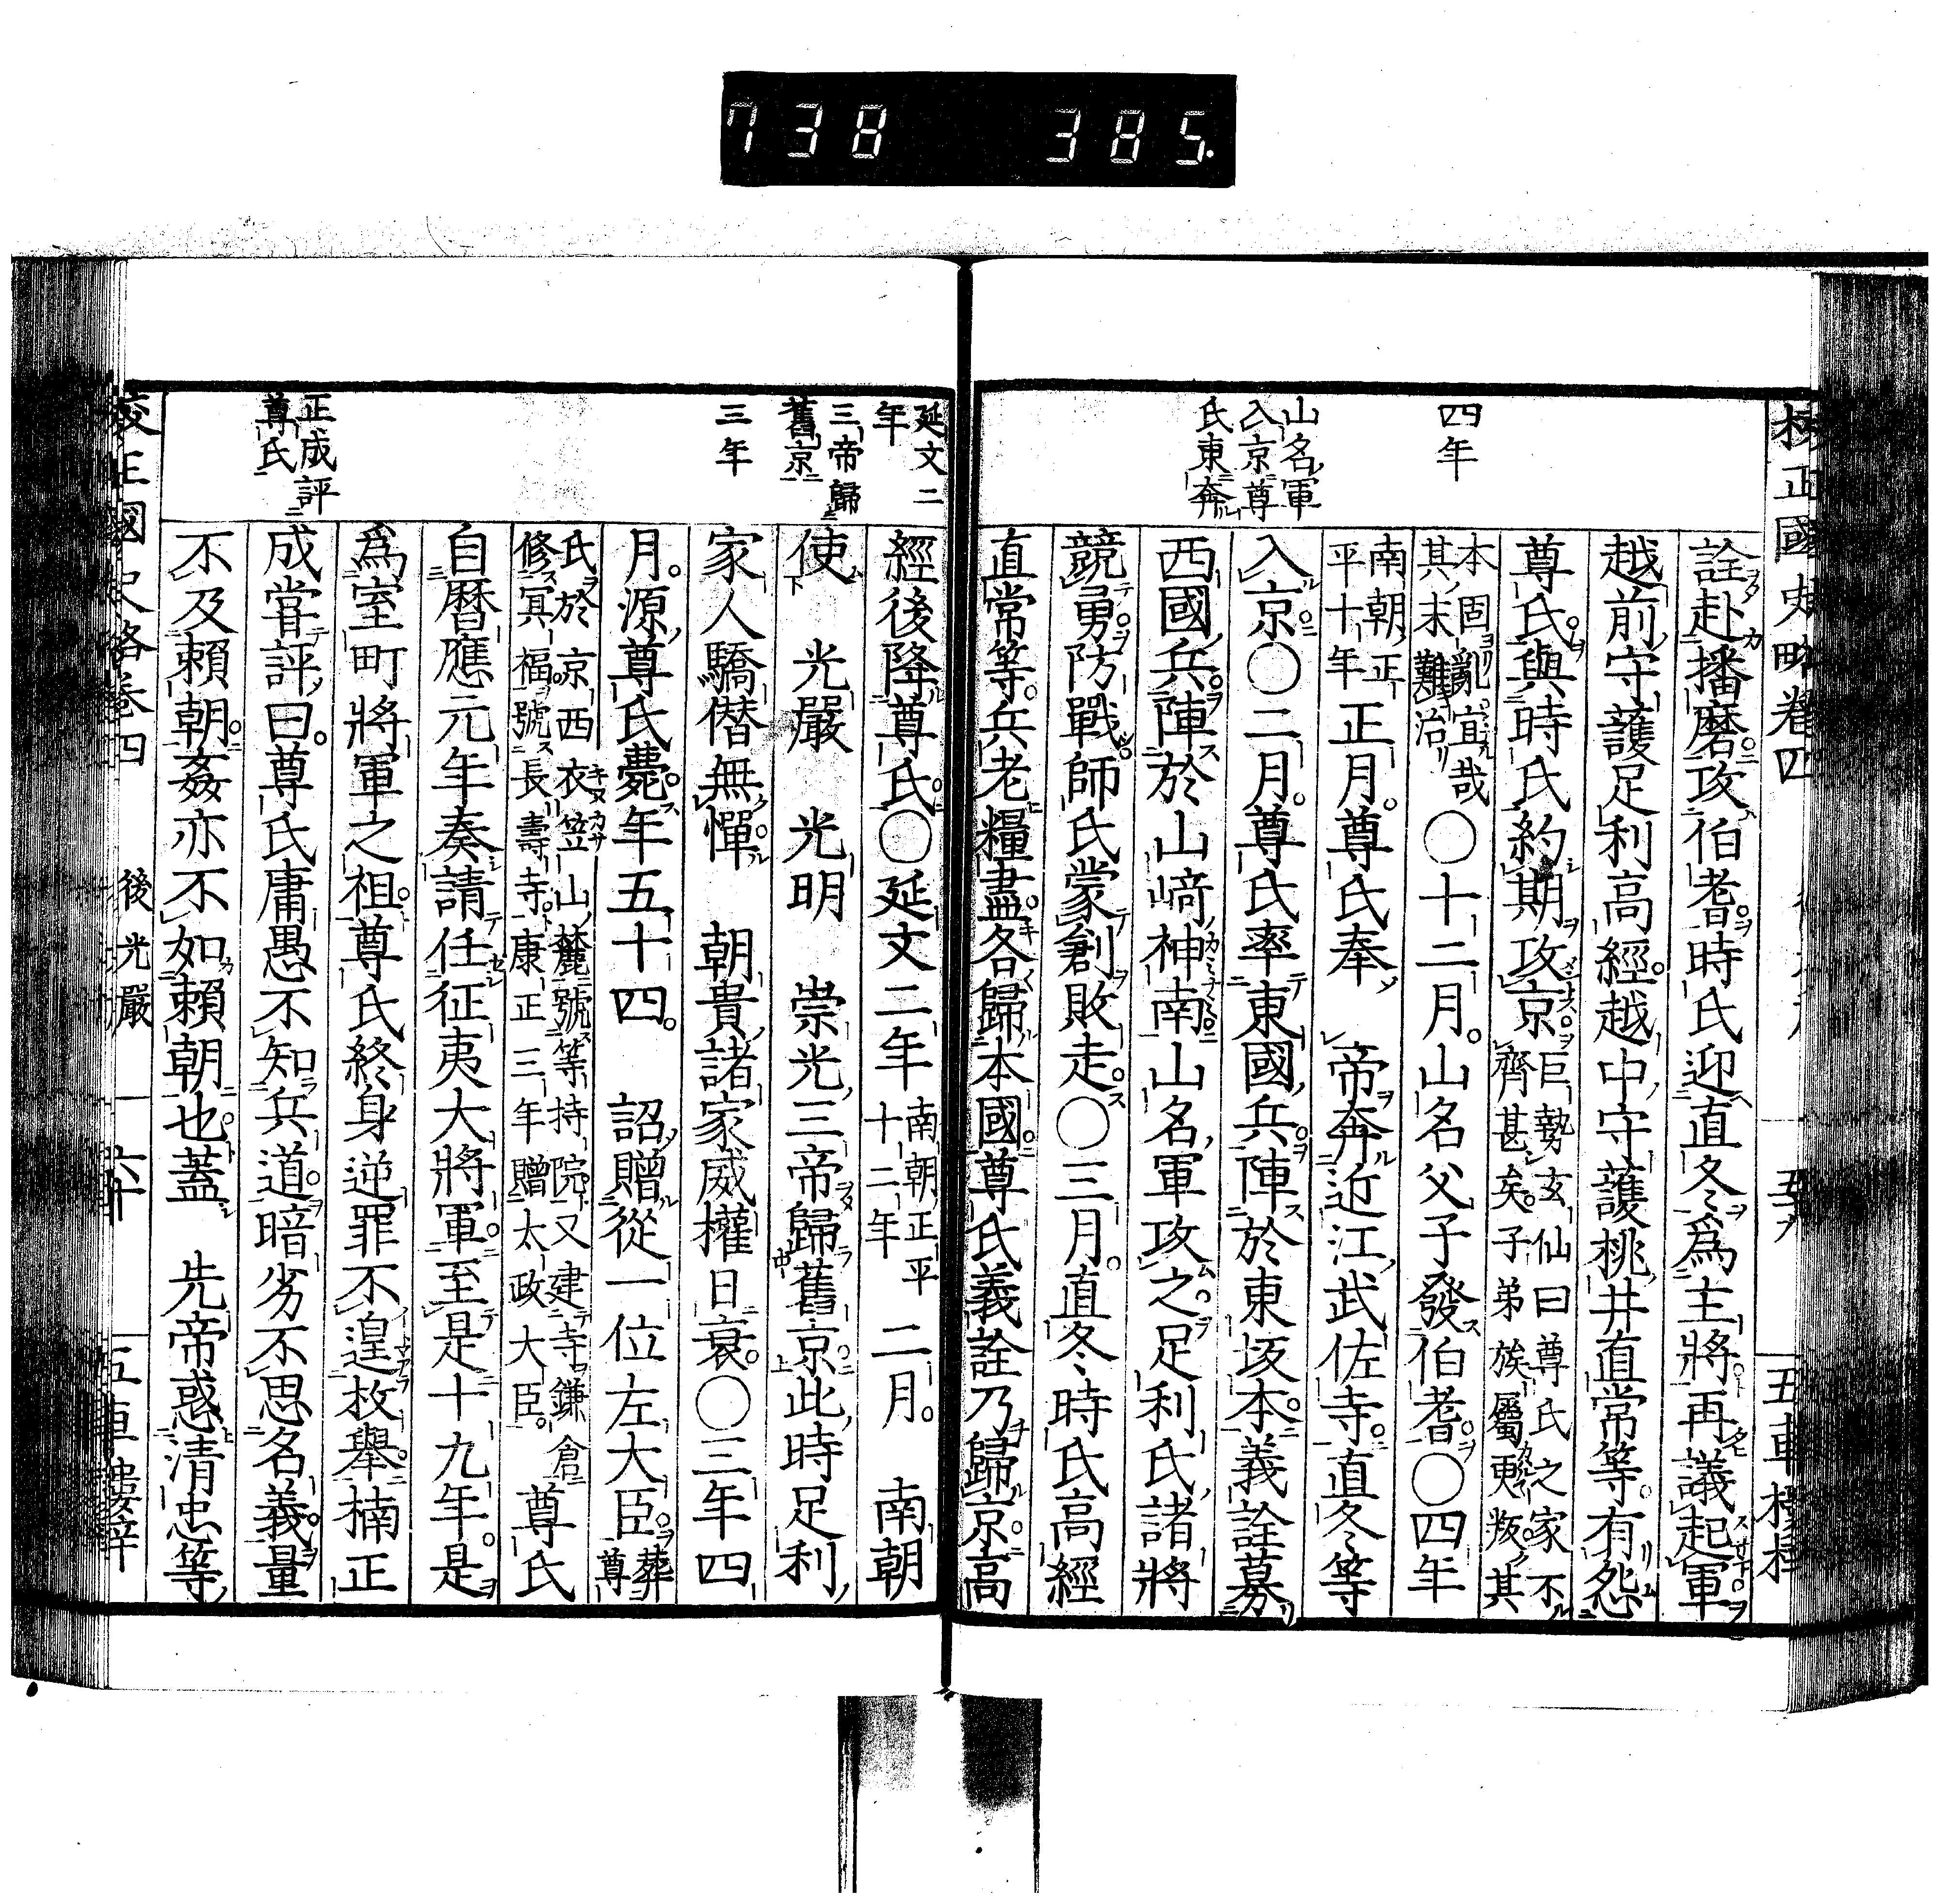 738 385.
校正國史略卷四
五車樓梓
四年
山名軍
入京尊
氏東奔
詮赴播磨攻伯耆時氏迎直冬爲主將再議起軍
越前守護足利高經越中守護桃井直常等有怨
尊氏與時氏約期攻京巨勢玄仙曰尊氏之家不
齊甚矣子弟族屬更叛其
本固亂宜哉
其末難治〇十二月山名父子發伯耆〇四年
南朝正
平十年正月尊氏奉 帝奔近江武佐寺直冬等
入京〇二月尊氏率東國兵陣於東坂本義詮募
西國兵陣於山﨑神南山名軍攻之足利氏諸將
競勇防戰師氏蒙創敗走〇三月直冬時氏高經
直常等兵老糧盡各歸本國尊氏義詮乃歸京高
延文二
年
三帝歸
舊京
三年
正成評
尊氏
經後降尊氏〇延文二年南朝正平
十二年二月 南朝
使 光嚴 光明 崇光三帝歸舊京此時足利
家人驕僭無憚 朝貴諸家威權日衰〇三年四
月源尊氏薨年五十四 詔贈從一位左大臣葬
尊
氏於京西衣笠山麓號等持院又建寺鎌倉
修冥福號長壽寺康正三年贈太政大臣尊氏
自曆應元年奏請任征夷大將軍至是十九年是
爲室町將軍之祖尊氏終身逆罪不遑枚舉楠正
成甞評曰尊氏庸愚不知兵道暗劣不思名義量
不及賴朝姦亦不如賴朝也蓋 先帝惑清忠等
校正國史略卷四
後光嚴
六十
五車樓梓